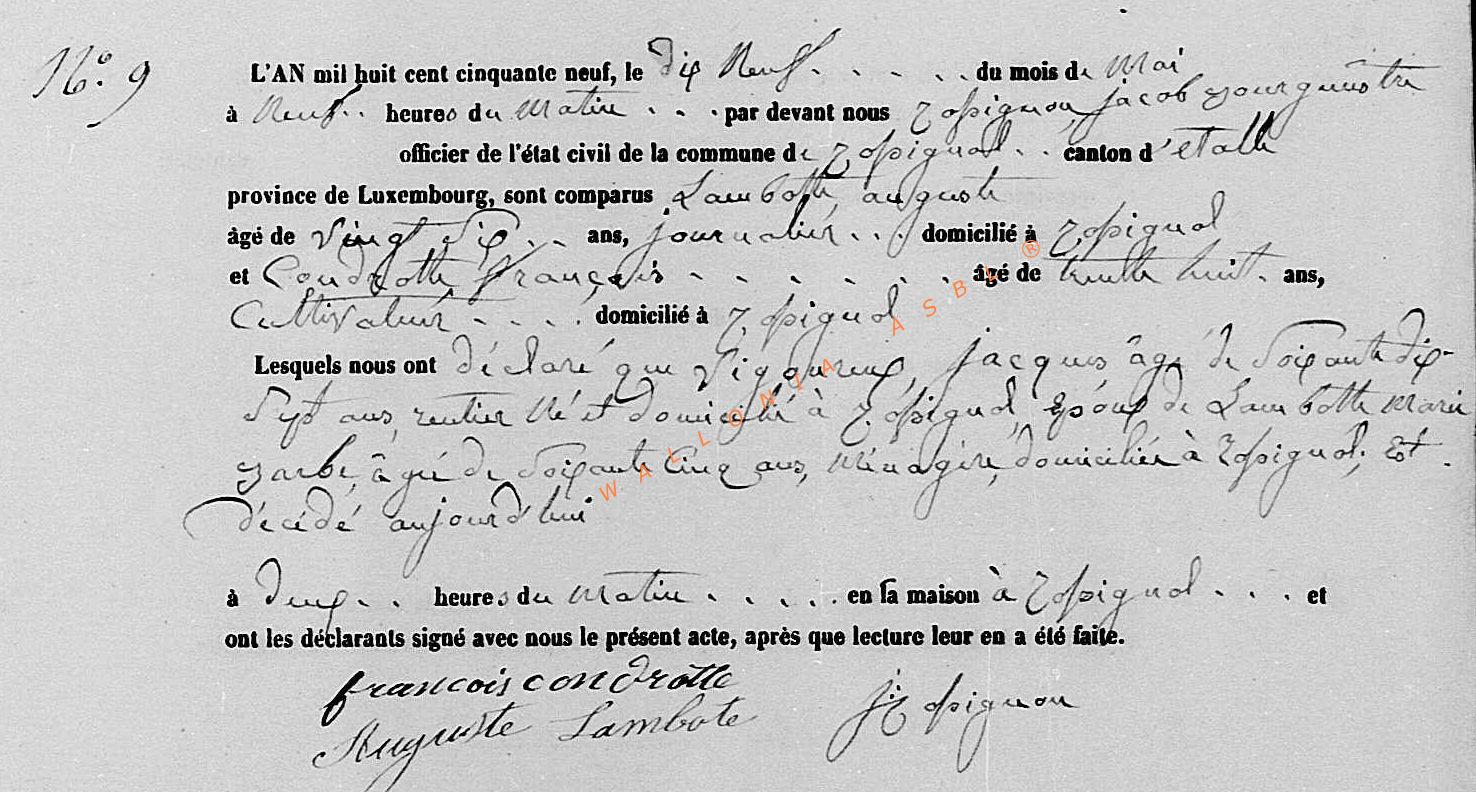 N.º 9
L'AN mil huit cent cinquante neuf, le dix Neuf . . . . . du mois de Mai
à Neuf . . heures du Matin . . . par devant nous jacob Bourguestre
officier de l'état civil de la commune de . . canton d'etalle
province de Luxembourg, sont comparus Lambotte, auguste
âgé de vingt Six . . ans, journalier . . . domicilié à
et Condrotte, françois . . . . . . . âgé de trente huit . ans,
Cultivateur . . . . domicilié à
Lesquels nous ont déclaré que Vigoureux, jacques âgé de Soixante dix-
Sept ans, rentier Né et domicilié à époux de Lambotte Marie
Barbe, âgée de Soixante Cinq ans, Ménagère, domiciliée à Est .
décédé aujourd'hui
à deux . . heures du Matin . . . . . en sa maison à . . . et
ont les déclarants signé avec nous le présent acte, après que lecture leur en a été faite.
francois condrotte
Auguste Lambote
WALLONIA ASBL ®